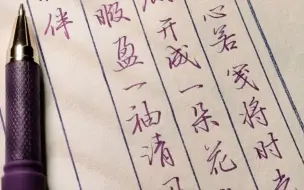 心若浅将时
开成一朵花
暇盈一袖清
伴